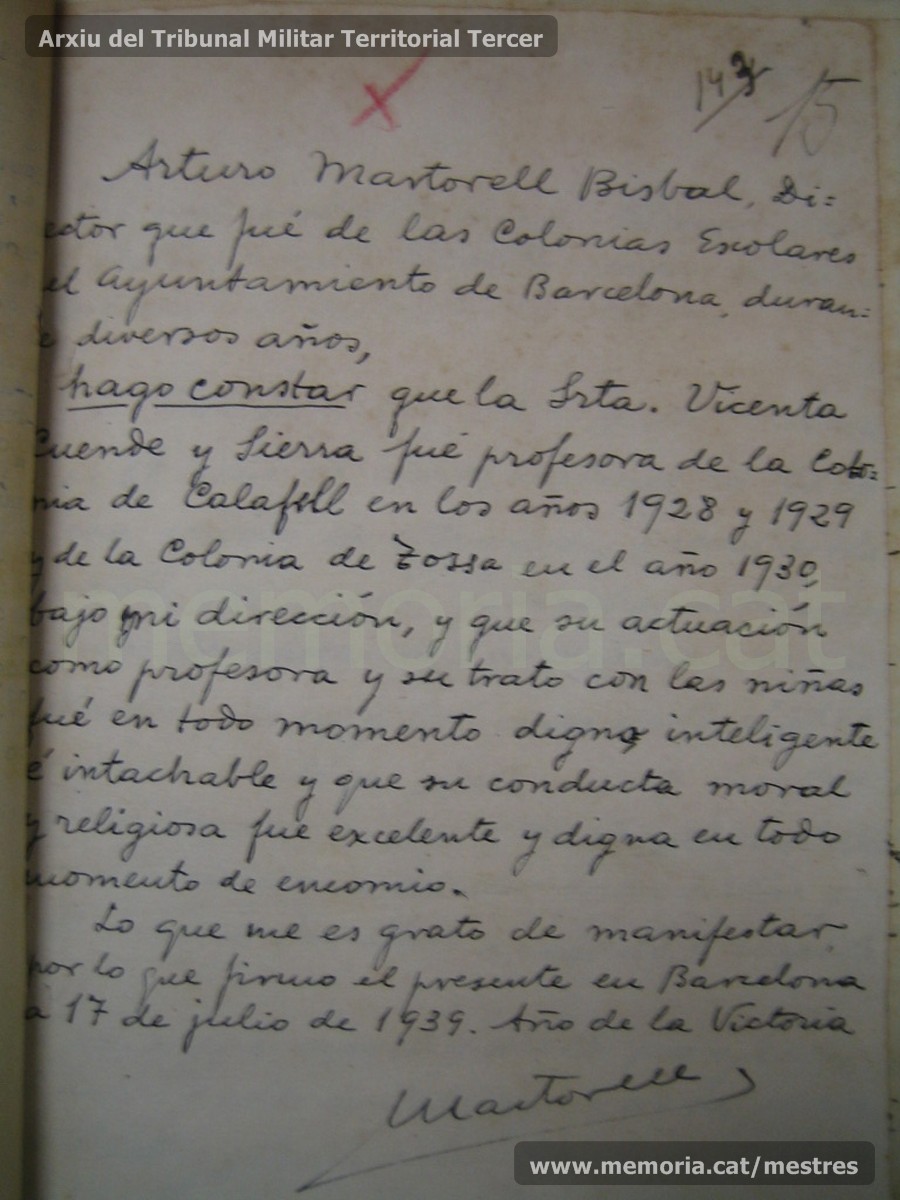 Arxiu del Tribunal Militar Territorial Tercer
15
Arturo Martorell Bisbal, Di=
ector que fué de las Colonias Escolares
el Ayuntamiento de Barcelona, duran=
e diversos años,
hago constar que la Srta. Vicenta
Cuende y Sierra fué profesora de la Colo=
nia de Calafell en los años 1928 y 1929
y de la Colonia de Tossa en el año 1930,
bajo mi dirección, y que su actuación
como profesora y su trato con las niñas
fué en todo momento digno inteligente
é intachable y que su conducta moral
y religiosa fue excelente y digna en todo
momento de encomio.
Lo que me es grato de manifestar
por lo que firmo el presente en Barcelona
a 17 de julio de 1939. Año de la Victoria
Martorell
memoria.cat
www.memoria.cat/mestres